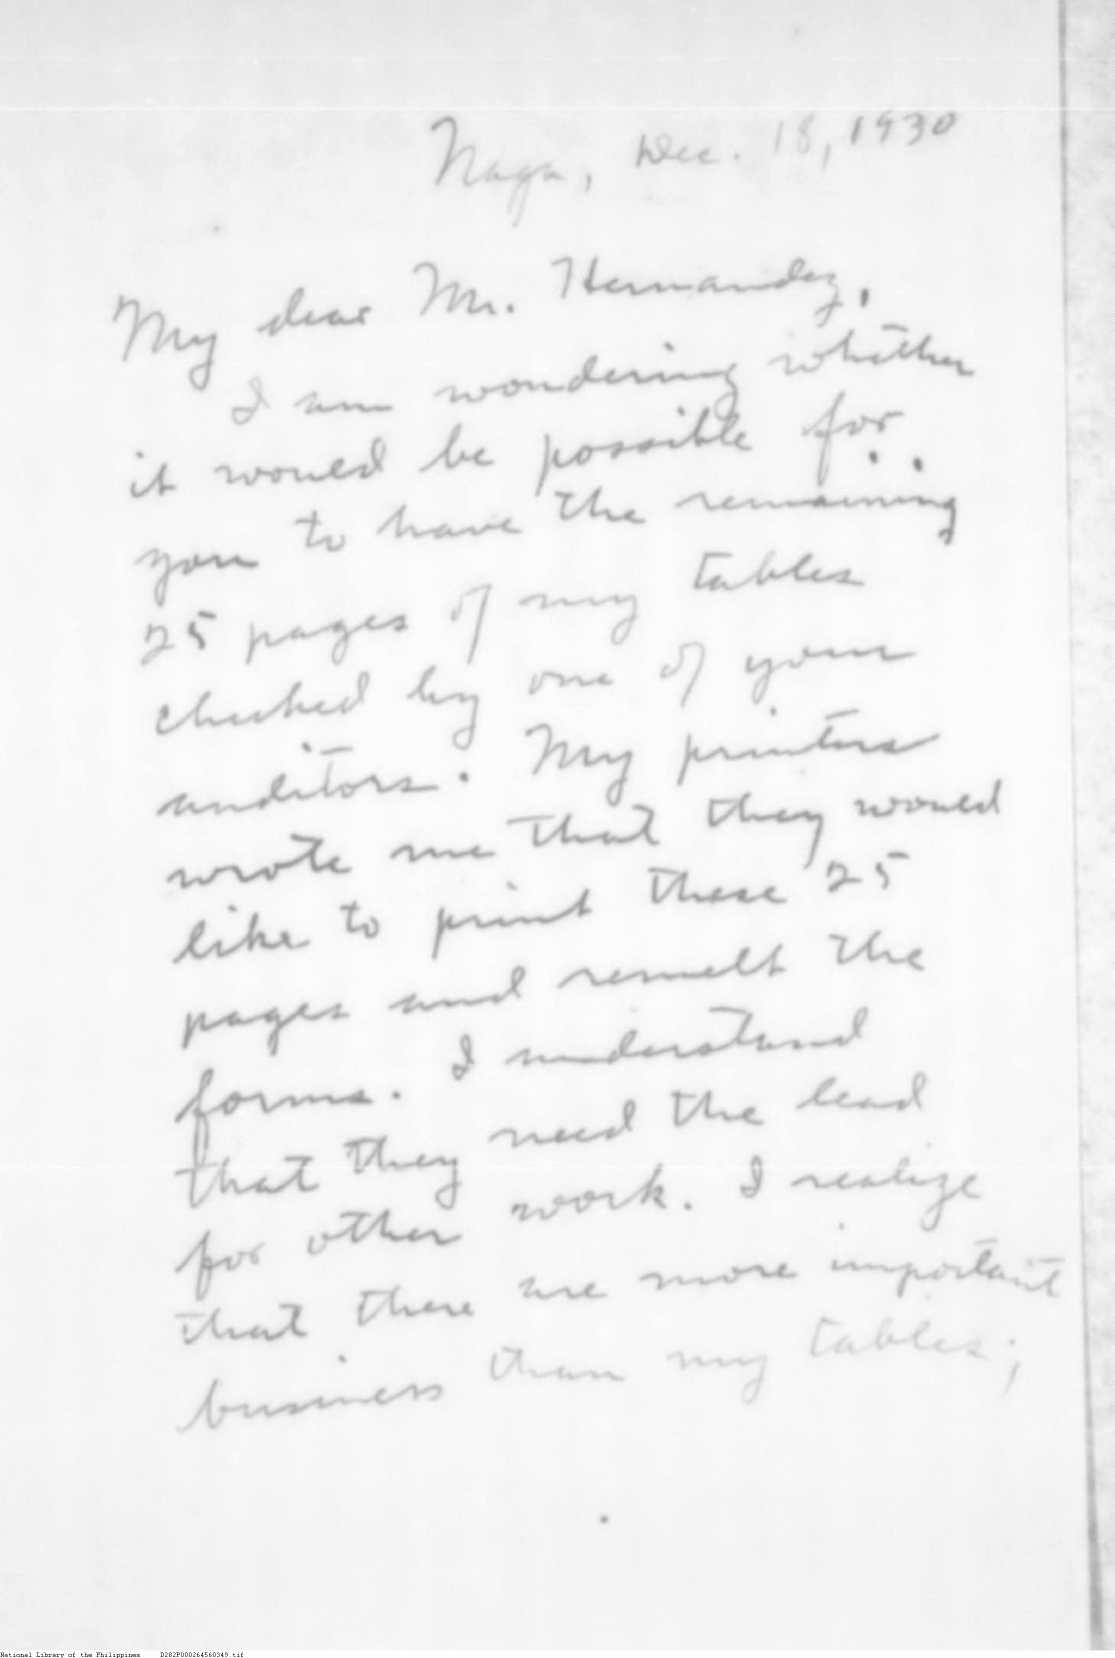 Naga, Dec. 18, 1930
My dear Mr. Hernandez,
I am wondering whether
it would be possible for
you to have the remaining
25 pages of my tables
checked by one of your
auditors. My printers
wrote me that they would
like to print these 25
pages and remelt the
forms. I understand
that they need the lead
for other work. I realize
that there are more important
business than my tables;
National Library of the Philippines D282P000264560349.tif